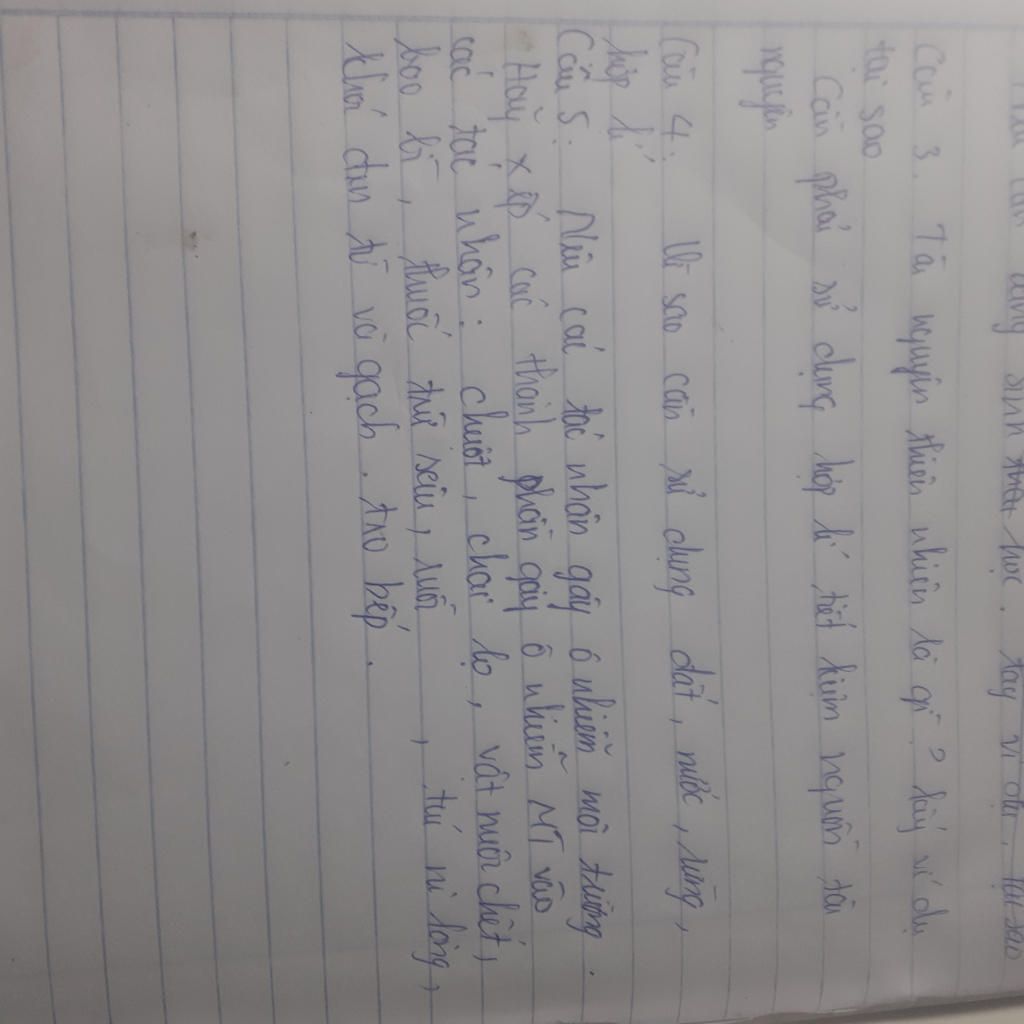 cần dùng sinh thái học. Lấy ví dụ, tại sao
Câu 3. Tài nguyên thiên nhiên là gì? Lấy ví dụ
tại sao
Cần phải sử dụng hợp lí tiết kiệm nguồn tài
nguyên
Câu 4: Vì sao cần sử dụng đất, nước, rừng,
hợp lí
Câu 5: Nêu các tác nhân gây ô nhiễm môi trường.
Hãy xếp các thành phần gây ô nhiễm MT vào
các tác nhân: chuột, chai lọ, vật nuôi chết,
bao bì, thuốc trừ sâu, ruồi, túi ni lông,
khói đun từ vỏ gạch. tro bếp.